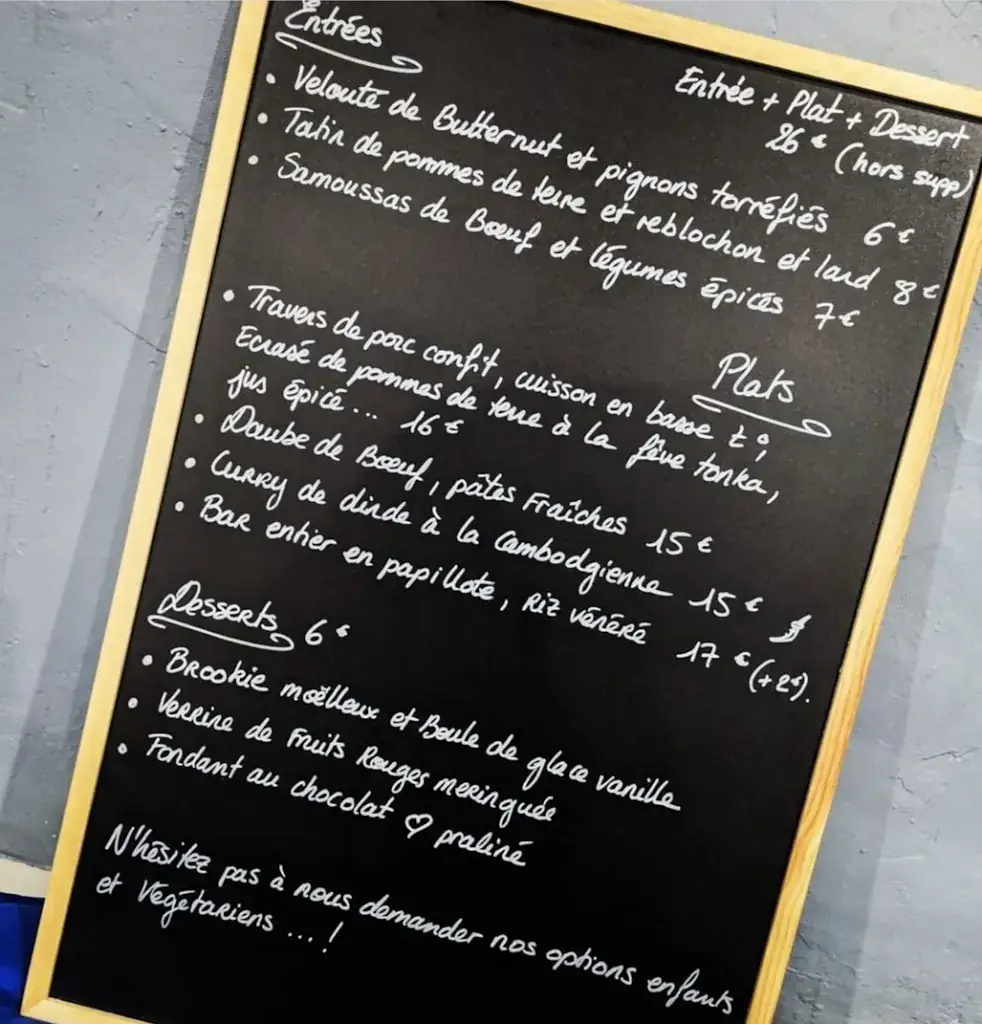 Entrées
Entrée + Plat + Dessert
26 € (hors supp)
• Velouté de Butternut et pignons torréfiés 6 €
• Tatin de pommes de terre et reblochon et lard 8 €
• Samoussas de Boeuf et légumes épicés 7 €
Plats
• Travers de porc confit, cuisson en basse t°,
Ecrasé de pommes de terre à la fêve tonka,
jus épicé ... 16 €
• Daube de Boeuf, pâtes Fraîches 15 €
• Curry de dinde à la Cambodgienne 15 €
• Bar entier en papillote, Riz vénéré 17 € (+2€).
Desserts 6 €
• Brookie moëlleux et Boule de glace vanille
• Verrine de Fruits Rouges meringuée
• Fondant au chocolat ♡ praliné
N'hésitez pas à nous demander nos options enfants
et Végétariens ...!